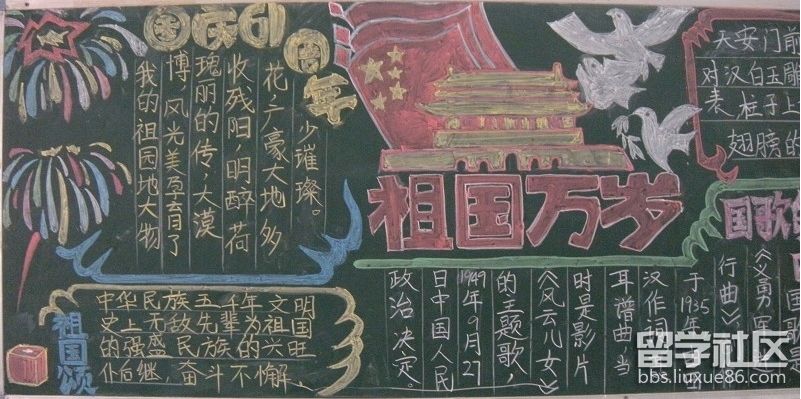 国庆61周年
我的祖园地大物
博 风光美孕育了
瑰丽的传,大漠
收残阳,明醉荷
花,广豪大地 多
少璀璨。
祖国万岁
天安门前
对汉白玉雕
表 柱子上
翅膀的
祖国颂
中华民族五千年文明
史上无敌先辈为祖国
的强盛民族的兴旺
仆后继,奋斗不懈,
国歌
国歌是
《义勇军
行曲》
于1935年
汉作词
耳谱曲 当
时是影片
《风云儿女》
的主题歌,
1949年9月27
日中国人民
政治 决定。
留学社区
bbs.liuxue86.com